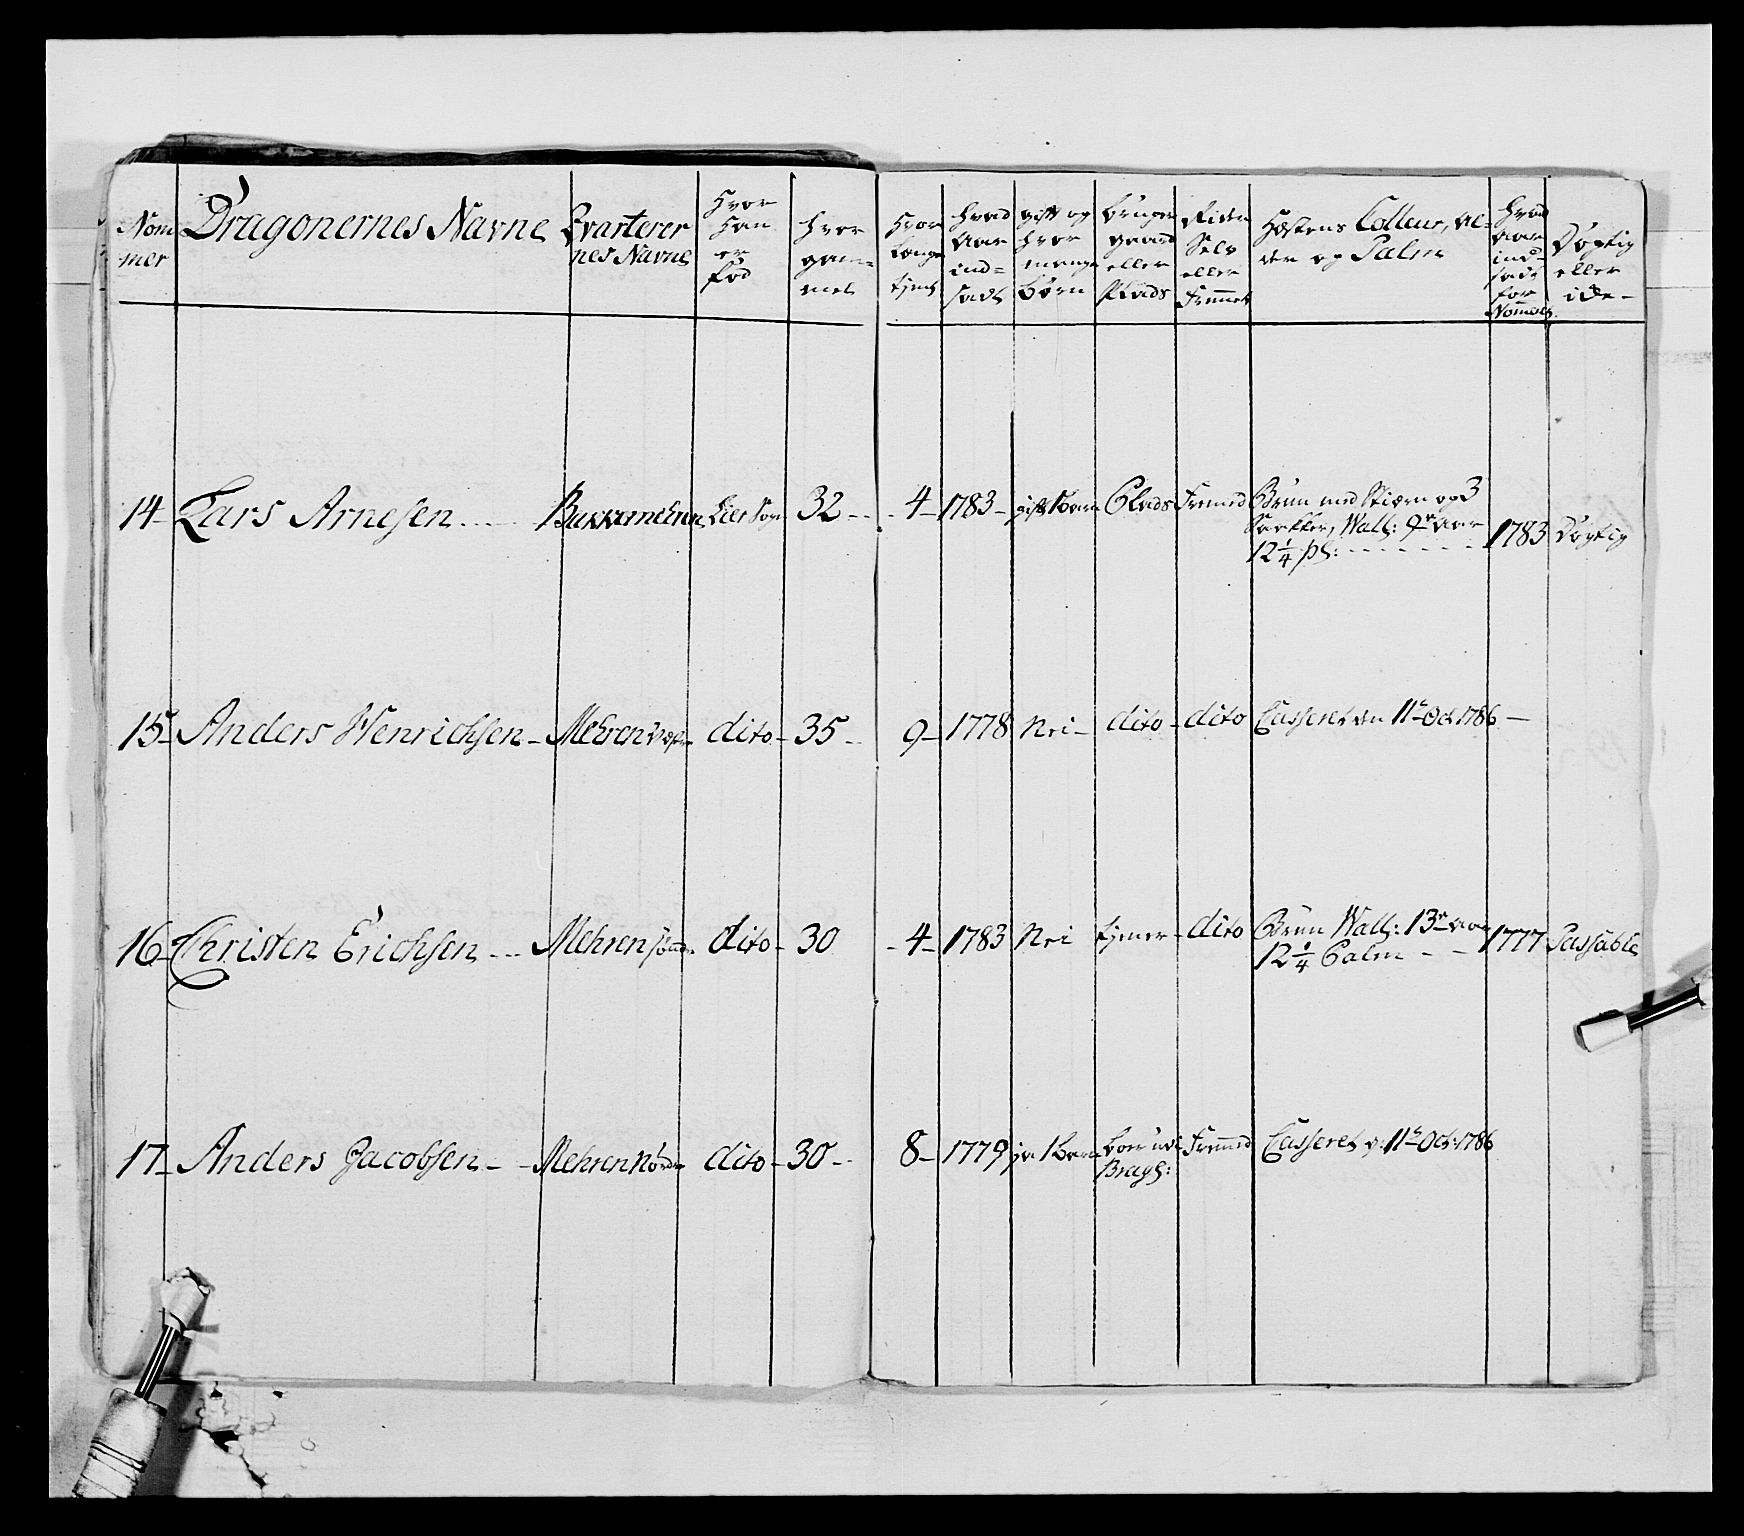 Nom
mer
Dragonernes Navne
Qvarterer
nes Navne
Hvor
Han
er
fød
hvor
gam=
mel
Hvor
længe
tjent
hvad
Aar
ind=
sadt
gift og
hvor
mange
børn
bruger
gaard
eller
Plads
Rider
Selv
eller
Fremet
Hæstens Colleur, Al=
der og Palm
hvad
Aar
ind=
sadt
for
Nomeret
Dygtig
eller
ide-
14- Lars Arnesen .... Lier Sogn 32 - - 4- 1783- gift 1 barn Plads Fremed Brun med Stiern og 3
Sokker, Wall: 9r Aar
12 1/4 pl: - - - - - - - 1783 Dygtig
15- Anders Henrichsen - Mehren dito - 35 - 9- 1778 Nei - dito - dito Casseret den 11te Oct 1786 -
16- Christen Erichsen - - - Mehren dito - 30 - 4- 1783 Nei tjener - dito Brun Wall: 13r Aar
12 1/4 Palm - - 1777 Passable
17- Anders Jacobsen - - Mehren Nordre dito - 30 - - 8- 1779 ja 1 barn boer ved Fremed Casseret d: 11te Oct: 1786
Bragh: